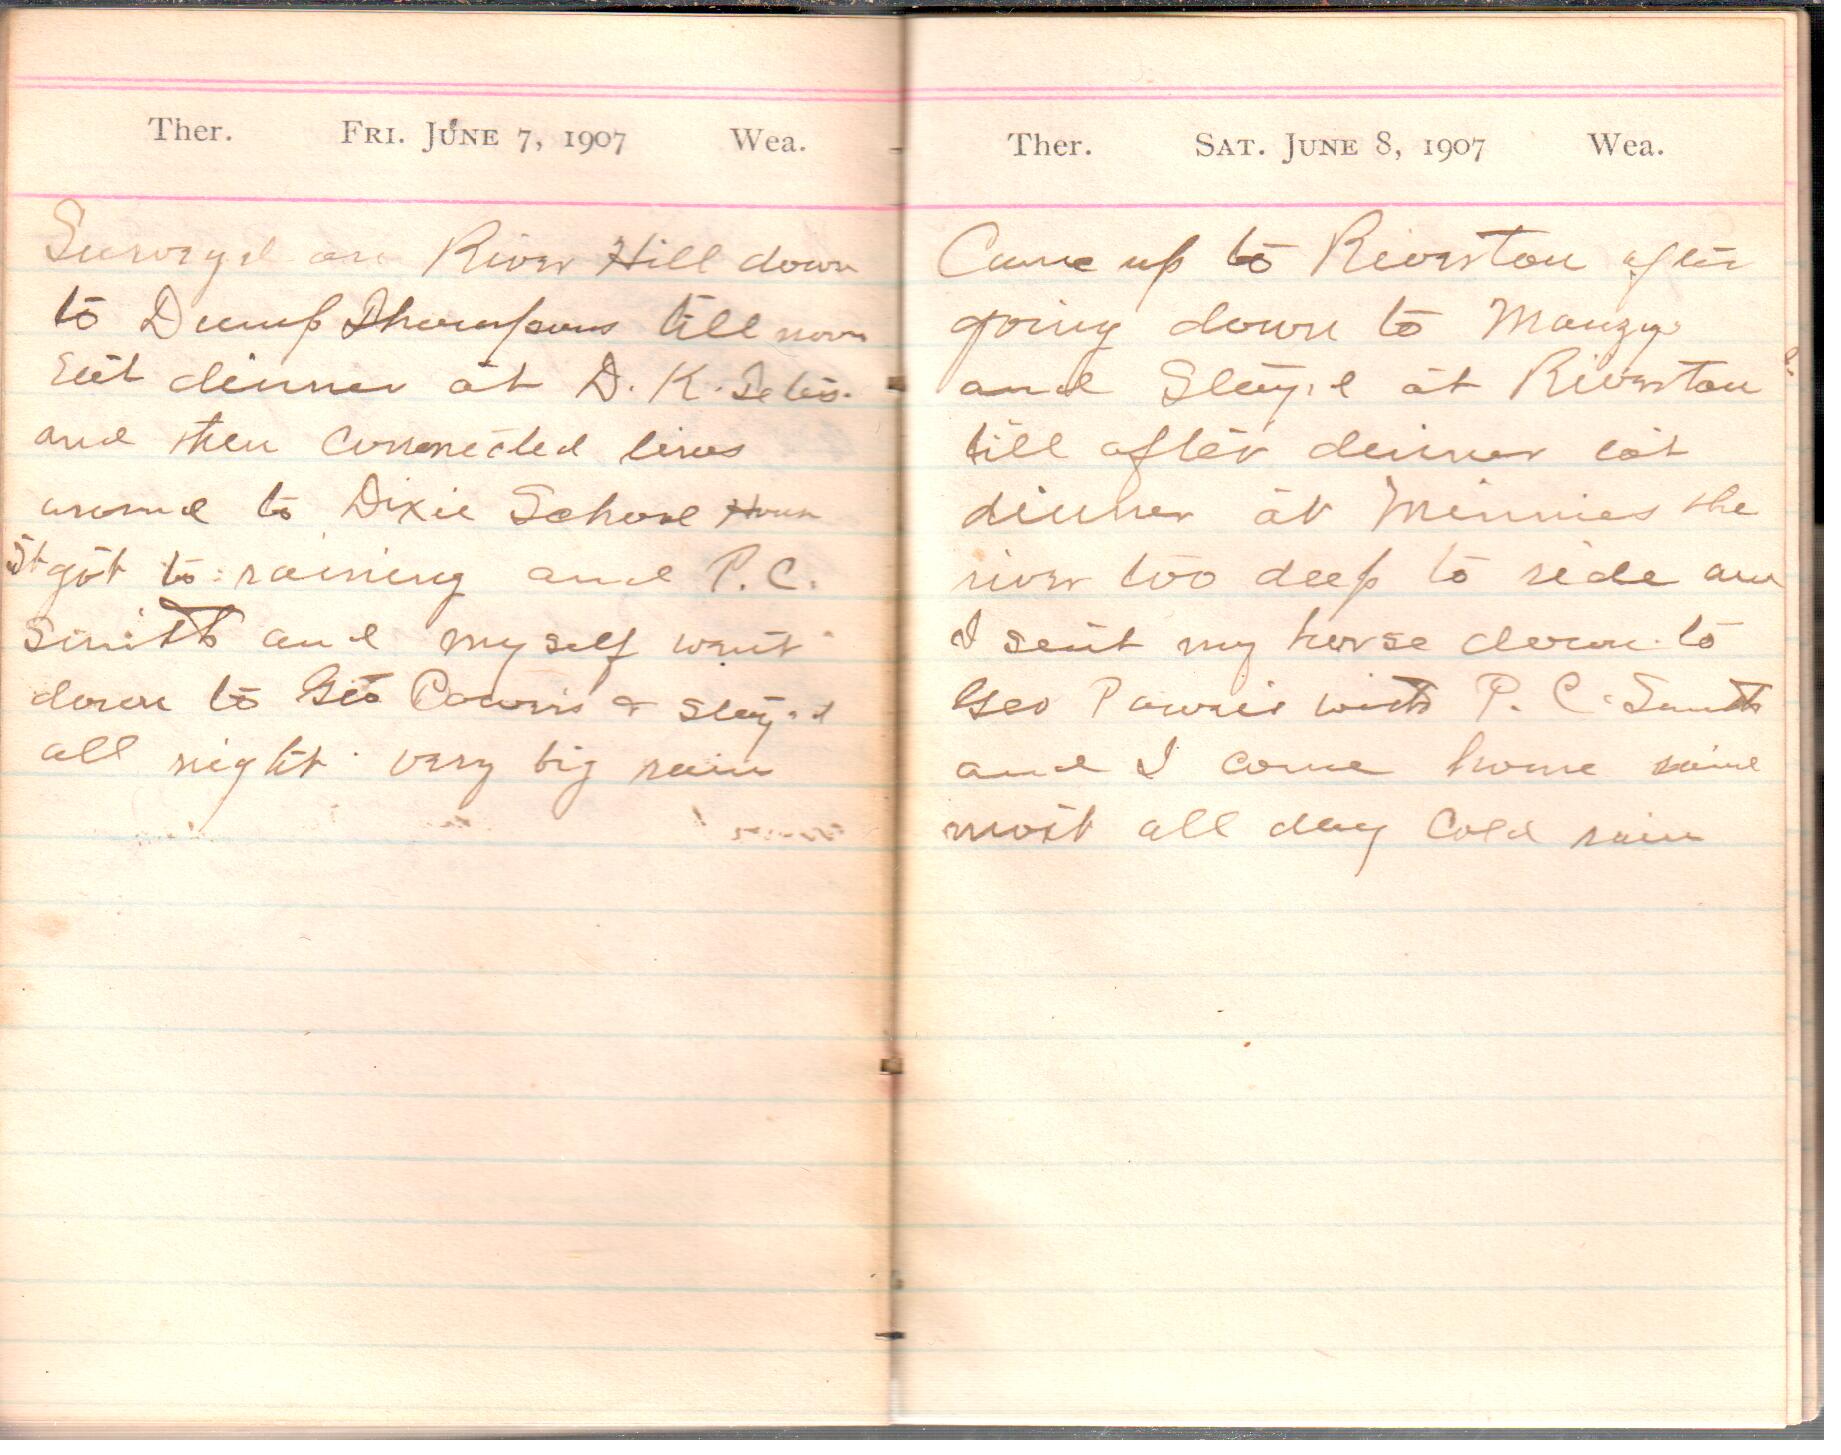 Ther. Fri. June 7, 1907 Wea.
Surveyd on River Hill down
to Dump Thompsons till noon
Eat dinner at D. K.
and then connected lines
around to Dixie School House
It got to raining and P. C.
Smith and myself went
down to Geo Powers & Stayed
all night very big rain
Ther. Sat. June 8, 1907 Wea.
Came up to Riverton after
going down to Mauzys
and Stayed at Riverton
till after dinner eat
dinner at Minnies the
river too deep to ride and
I sent my horse down to
Geo Powers with P. C. Smith
and I come home raind
most all day Cold rain